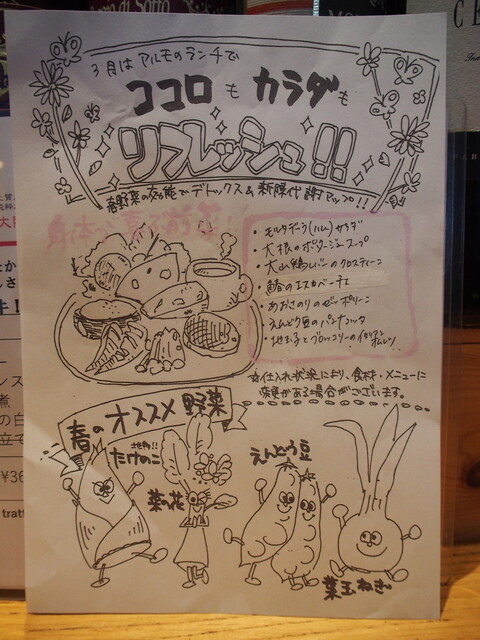 3月はアルモのランチで
ココロも カラダも
リフレッシュ!!
春野菜の効能でデトックス&新陳代謝アップ!!
・モルタデラ(ハム)サラダ
・大根のポタージュスープ
・大山鶏レバーのクロスティーニ
・鯖のエスカベーチェ
・あおさのりのゼッポリーニ
・えんどう豆のパンナコッタ
・地玉子とブロッコリーのイタリアンオムレツ
☆仕入れ状況により、食材・メニューに
変更がある場合がございます。
春のオススメ野菜
地物!!
たけのこ
菜の花
えんどう豆
葉玉ねぎ